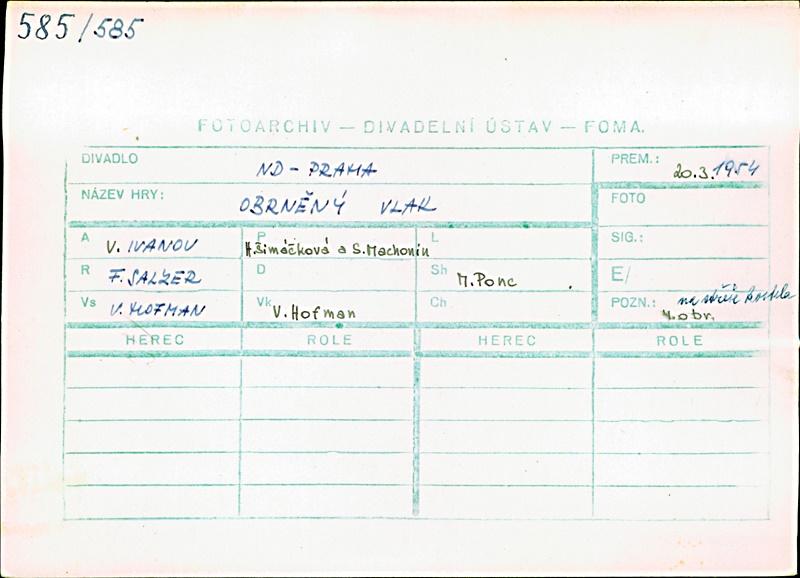 585/585
FOTOARCHIV — DIVADELNÍ ÚSTAV — FOMA.
DIVADLO ND - PRAHA PREM.: 20.3.1954
NÁZEV HRY: OBRNĚNÝ VLAK FOTO
A V. IVANOV P H.Šimáčková a S.Machonin L SIG.:
R F. SALZER D Sh M.Ponc E/
Vs V. HOFMAN Vk V.Hofman Ch POZN.: na střeše kostela
4.obr.
HEREC ROLE HEREC ROLE